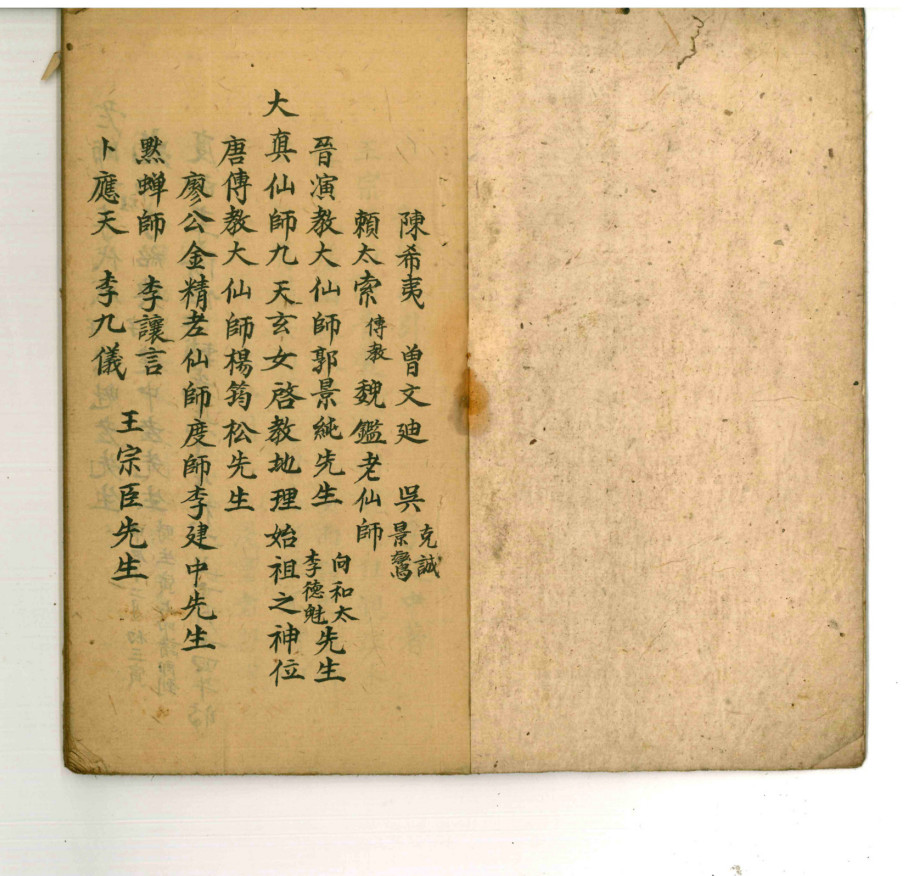 陳希夷 曾文廸 吳克誠景鸞
賴太索傳教魏鑑老仙師
晉演教大仙師郭景純先生向和太李德魁先生
大真仙師九天玄女啓教地理始祖之神位
唐傳教大仙師楊筠松先生
廖公金精老仙師度師李建中先生
默蟬師 李讓言 王宗臣先生
卜應天 李九儀